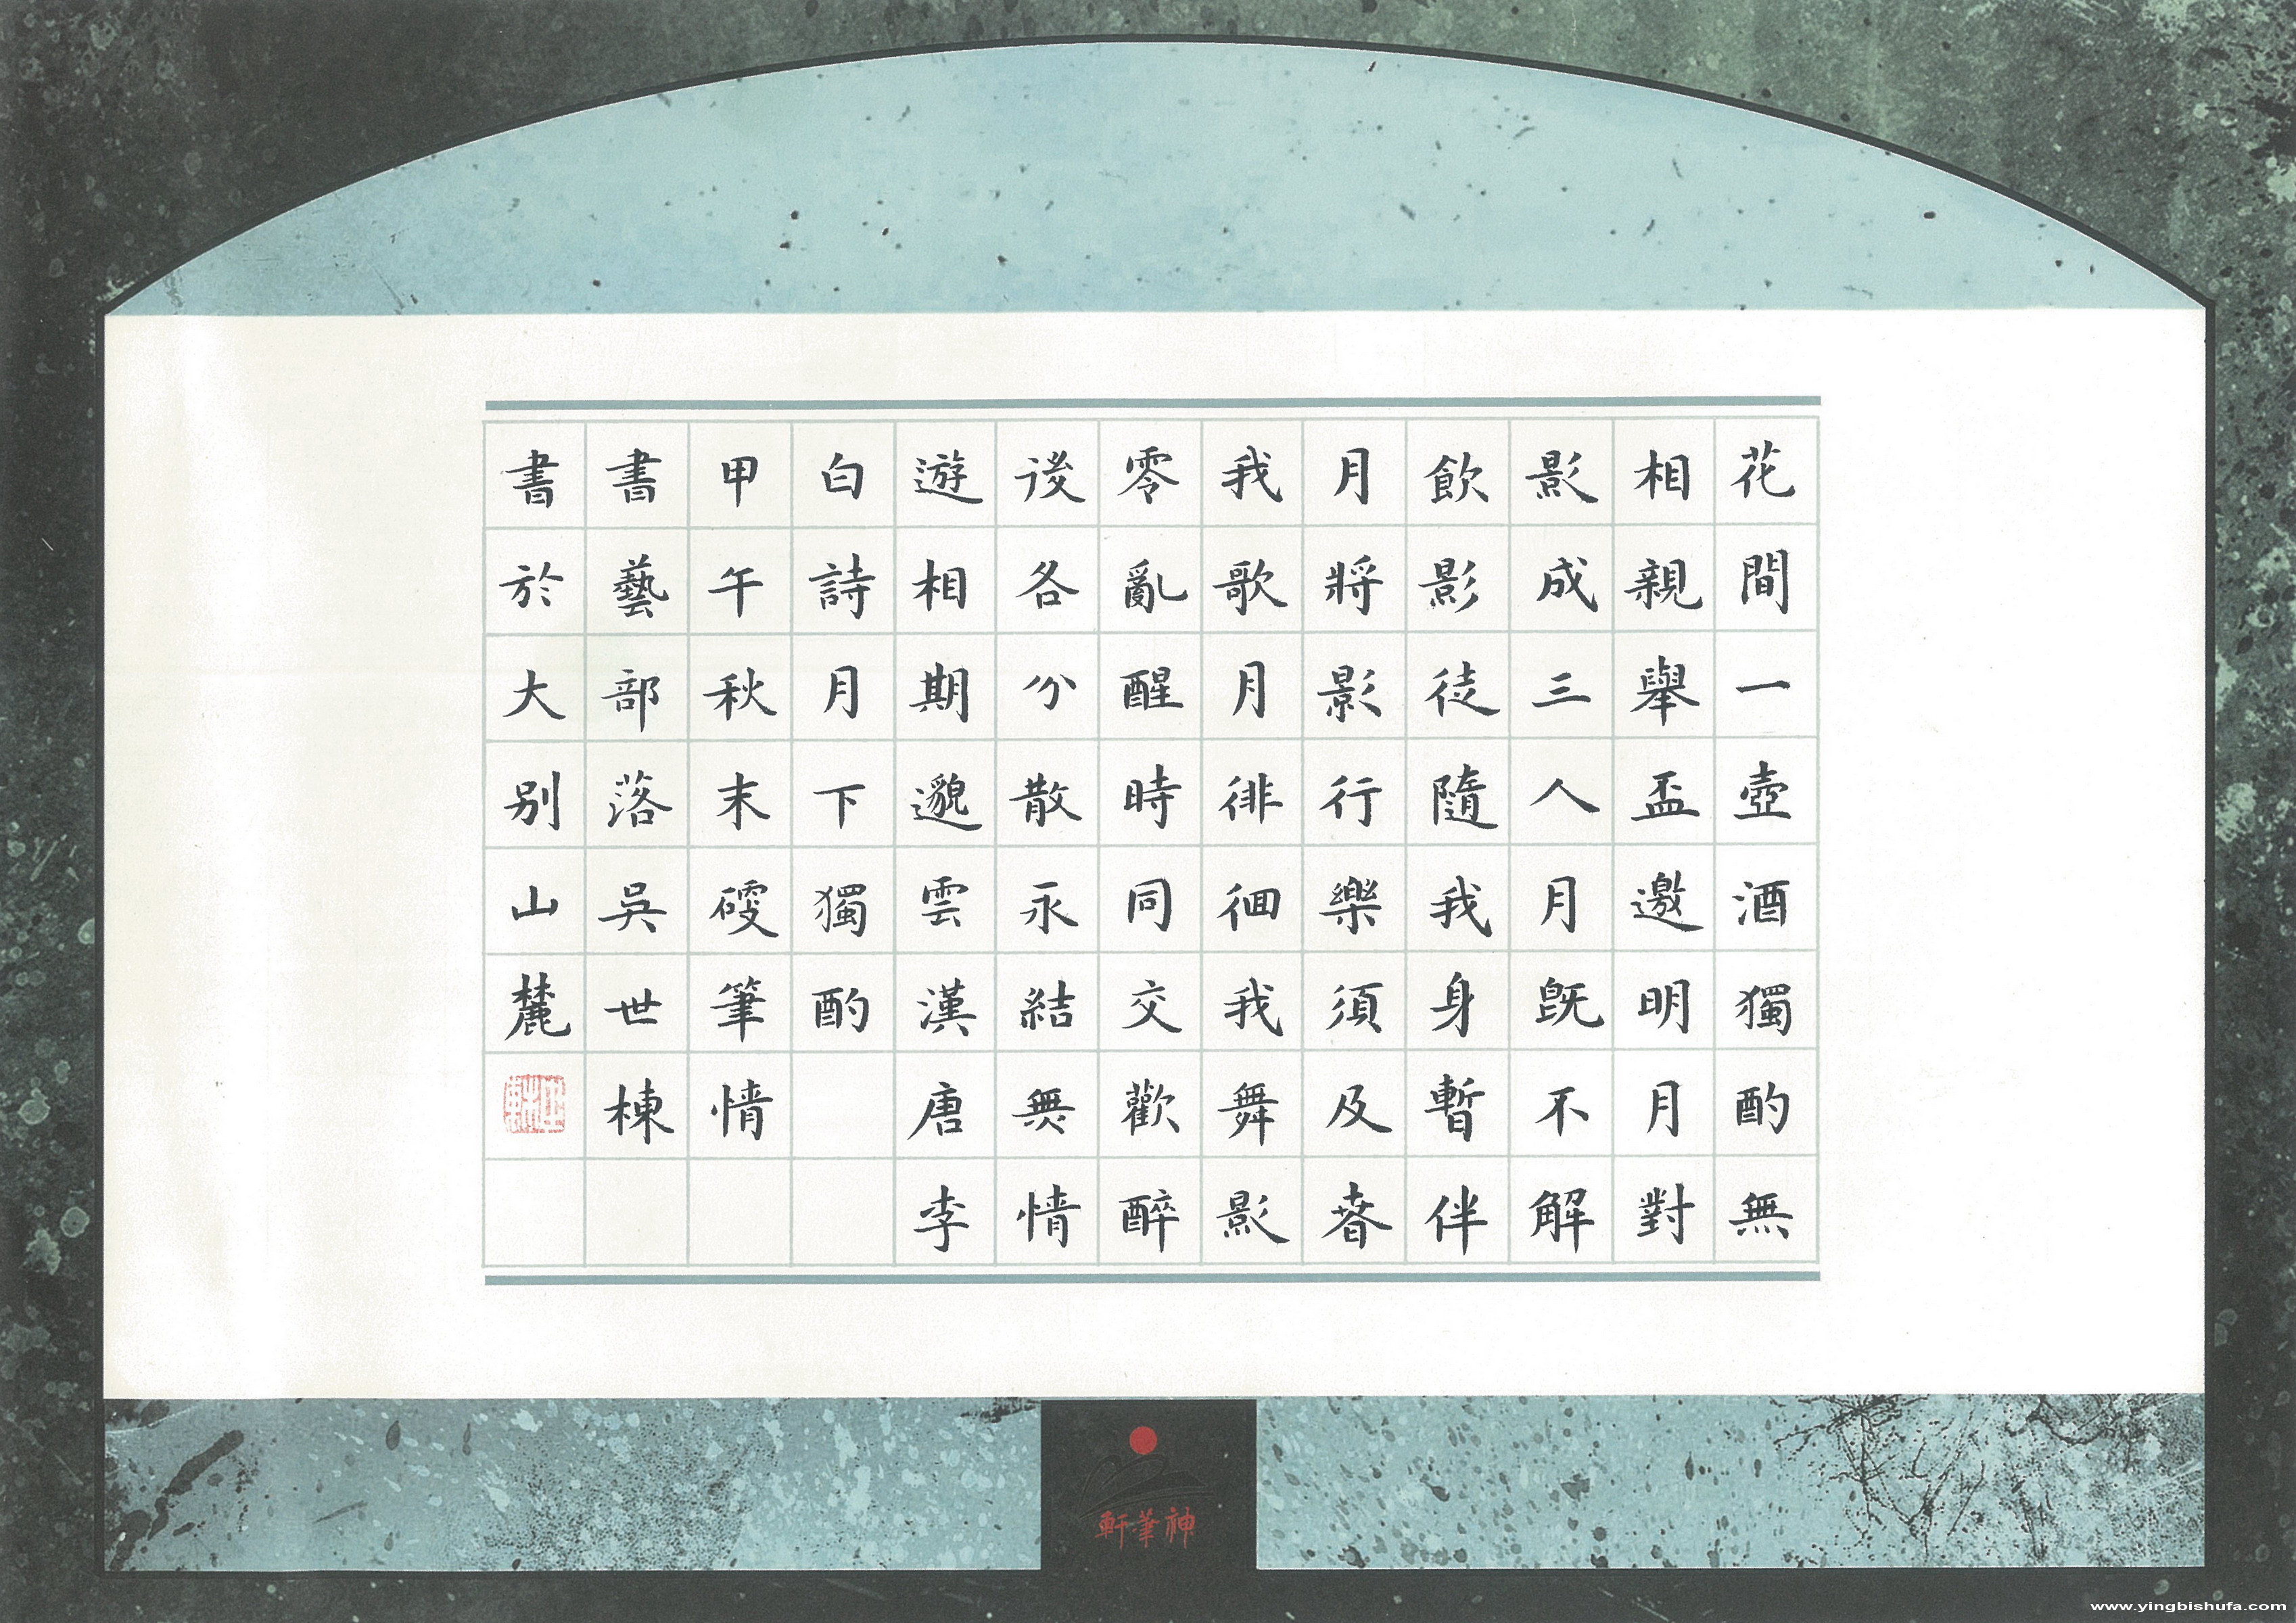 花間一壺酒獨酌無
相親舉盃邀明月對
影成三人月既不解
飲影徒隨我身暫伴
月將影行樂須及春
我歌月徘徊我舞影
零亂醒時同交歡醉
後各分散永結無情
遊相期邈雲漢唐李
白詩月下獨酌
甲午秋末硬筆情
書藝部落吳世棟
書於大别山麓
神筆軒
www.yingbishufa.com